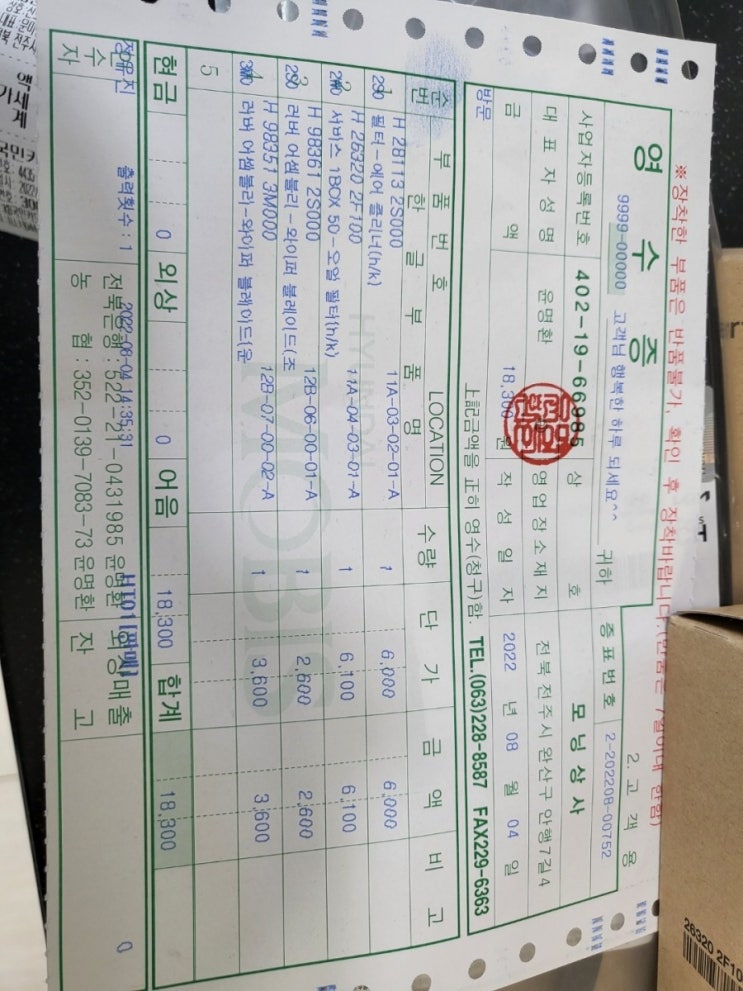 ※ 장착한 부품은 반품불가, 확인 후 장착바랍니다.(반품은 7일이내 한함)
영 수 증
2. 고 객 용
9999-00000 고객님 행복한 하루 되세요^^ 귀하
증표번호 2-202208-00752
사업자등록번호 402-19-66985 상 호 모닝상사
대 표 자 성 명 윤명환 영업장소재지 전북 전주시 완산구 안행7길4
금 액 18,300 원 작 성 일 자 2022 년 08 월 04 일
방문 上記금액을 正히 영수(청구)함. TEL.(063)228-8587 FAX229-6363
순번 부 품 번 호 LOCATION 수량 단 가 금 액 비 고
한 글 부 품 명
1 H 28113 2S000 11A-03-02-01-A 1 6,000 6,000
필터-에어 클리너(h/k)
2 H 26320 2F100 11A-04-03-01-A 1 6,100 6,100
서비스 1BOX 50-오일 필터(h/k)
3 H 98361 2S000 12B-06-00-01-A 1 2,600 2,600
러버 어셈블리-와이퍼 블레이드(조
4 H 98351 3M000 12B-07-00-02-A 1 3,600 3,600
러버 어셈블리-와이퍼 블레이드(운
5
HYUNDAI
MOBIS
현금 0 외상 0 어음 18,300 합계 18,300
인수자 정유진
출력횟수 : 1 2022-08-04 14:35:31 HT01[판매]
전북은행 : 522-21-0431985 윤명환 외상매출
농 협 : 352-0139-7083-73 윤명환 잔 고 0
26320 2F10